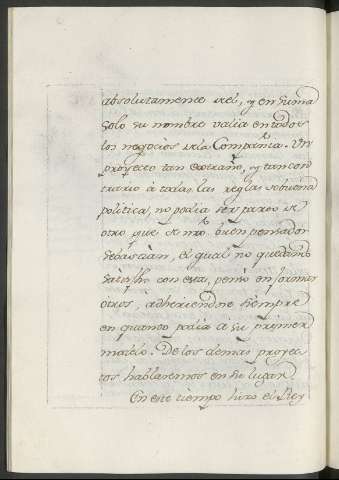 absolutamente del, y en suma
solo su nombre valia en todos
los negocios dela Compañia. Un
proyecto tan extraño, y tan con-
trario à todas las reglas de buena
politica, no podia ser parto de
otro que de nro. bien pensador
Sebastian, el qual no quedando
satisfho con esta, pensó en formar
otros, adheriendose siempre
en quanto podia à su primer
modelo. De los demas proyec-
tos hablaremos en su lugar
En este tiempo hizo el Rey